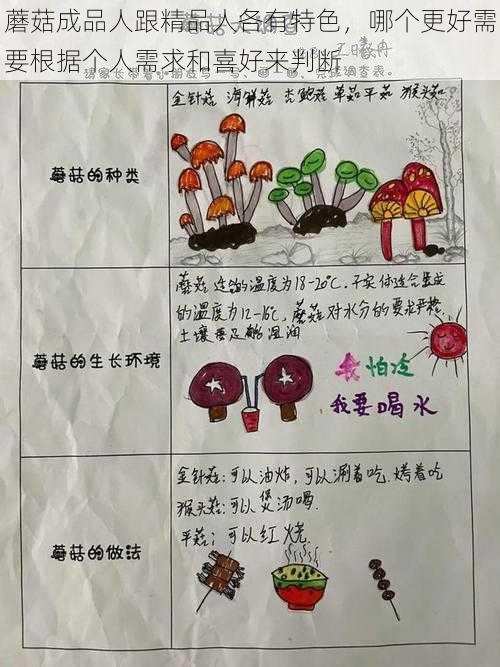 蘑菇成品人跟精品人各有特色，哪个更好需
要根据个人需求和喜好来判断
完成调查表。
蘑菇的种类
金针菇 海鲜菇 杏鲍菇 草菇 平菇 猴头菇
蘑菇的生长环境
蘑菇 适的温度为18-20℃.子实体适合生成
的温度为12-16℃，蘑菇对水分的要求严格,
土壤要足够湿润
我怕冷
我要喝水
蘑菇的做法
金针菇:可以油炸，可以涮着吃.烤着吃
猴头菇:可以煲汤喝
平菇；可以红烧